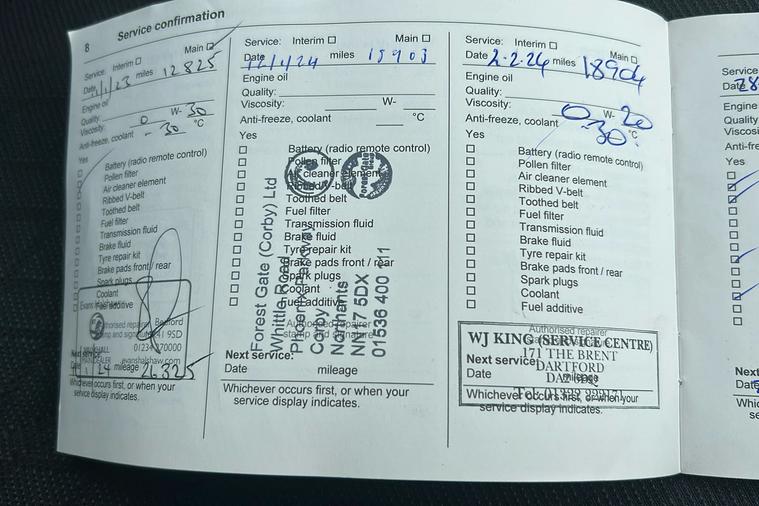 8 Service confirmation
Service: Interim ☐ Main ☑
Date 11/1/23 miles 12825
Engine oil
Quality: 0 W- 30
Viscosity:
Anti-freeze, coolant - 30 °C
Yes
Battery (radio remote control)
Pollen filter
Air cleaner element
Ribbed V-belt
Toothed belt
Fuel filter
Transmission fluid
Brake fluid
Tyre repair kit
Brake pads front / rear
Spark plugs
Coolant
Fuel additive
Authorised repairer
Bedford
MK41 9SD
01234 270000
evanshalshaw.com
Next service:
Date mileage 26325
Whichever occurs first, or when your
service display indicates.
Service: Interim ☐ Main ☐
Date 12/1/24 miles 18903
Engine oil
Quality:
Viscosity: W-
Anti-freeze, coolant °C
Yes
Battery (radio remote control)
Pollen filter
Air cleaner element
Ribbed V-belt
Toothed belt
Fuel filter
Transmission fluid
Brake fluid
Tyre repair kit
Brake pads front / rear
Spark plugs
Coolant
Fuel additive
Authorised repairer
stamp and signature
Forest Gate (Corby) Ltd
Whittle Road
Phoenix Parkway
Corby
Northants
NN17 5DX
01536 400 111
Next service:
Date mileage
Whichever occurs first, or when your
service display indicates.
Service: Interim ☐ Main ☐
Date 2.2.24 miles 18904
Engine oil
Quality:
Viscosity: 0 W- 20
Anti-freeze, coolant -30 °C
Yes
Battery (radio remote control)
Pollen filter
Air cleaner element
Ribbed V-belt
Toothed belt
Fuel filter
Transmission fluid
Brake fluid
Tyre repair kit
Brake pads front / rear
Spark plugs
Coolant
Fuel additive
Authorised repairer
WJ KING (SERVICE CENTRE)
171 THE BRENT
DARTFORD
Next service:
Date mileage
Whichever occurs first, or when your
service display indicates.
Service
Date 28
Engine
Quality
Viscosi
Anti-fre
Yes
Next
Date
Whic
se